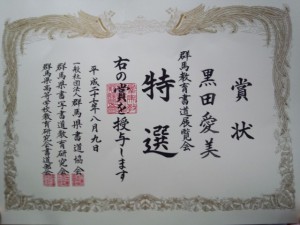 賞状
黒田愛美
群馬教育書道展覧会
特選
右の賞を授与します
平成二十七年八月九日
一般社団法人群馬県書道協会
群馬県書写書道教育研究会
群馬県高等学校教育研究会書道部会